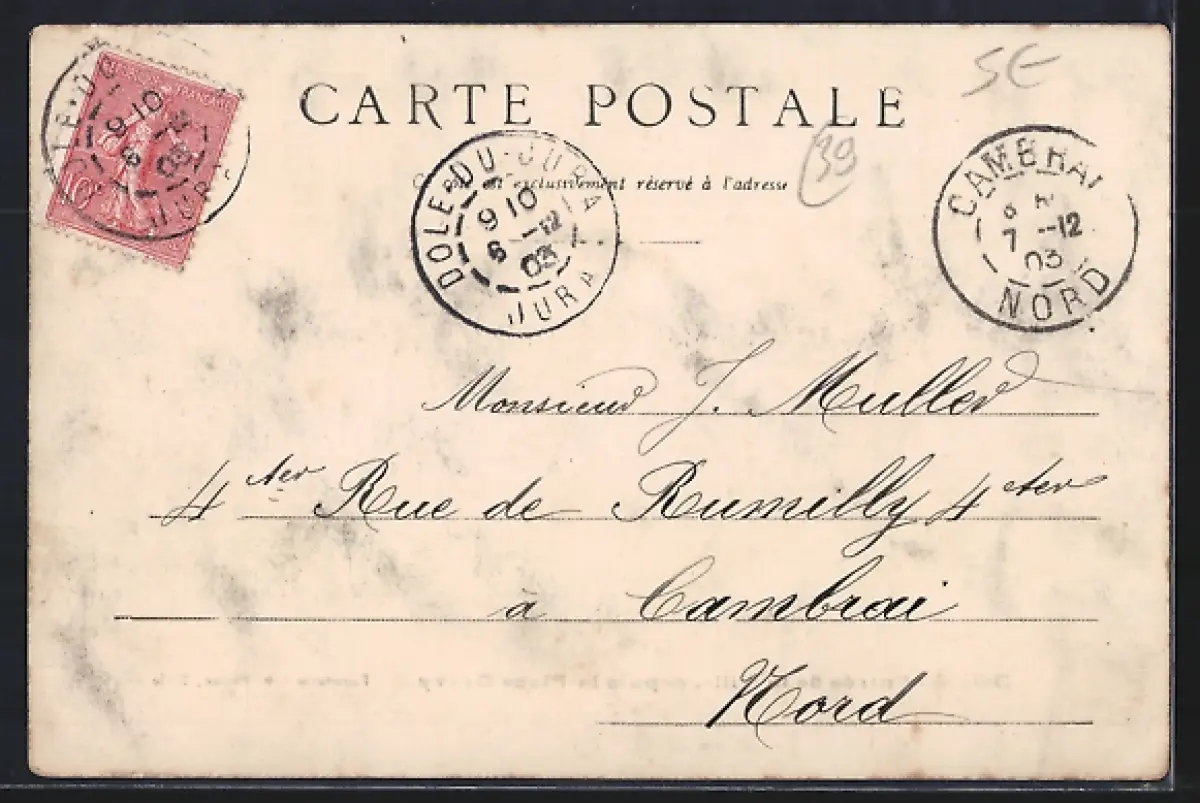 5€
CARTE POSTALE
39
Ce côté est exclusivement réservé à l'adresse
FRANÇAISE
10c
9 10
6 12
03
JURA
DOLE-DU-JURA
9 10
6 -12
03
JURA
CAMBRAI
7 -12
03
NORD
Monsieur J. Muller
4 ter Rue de Rumilly 4 ter
à Cambrai
Nord